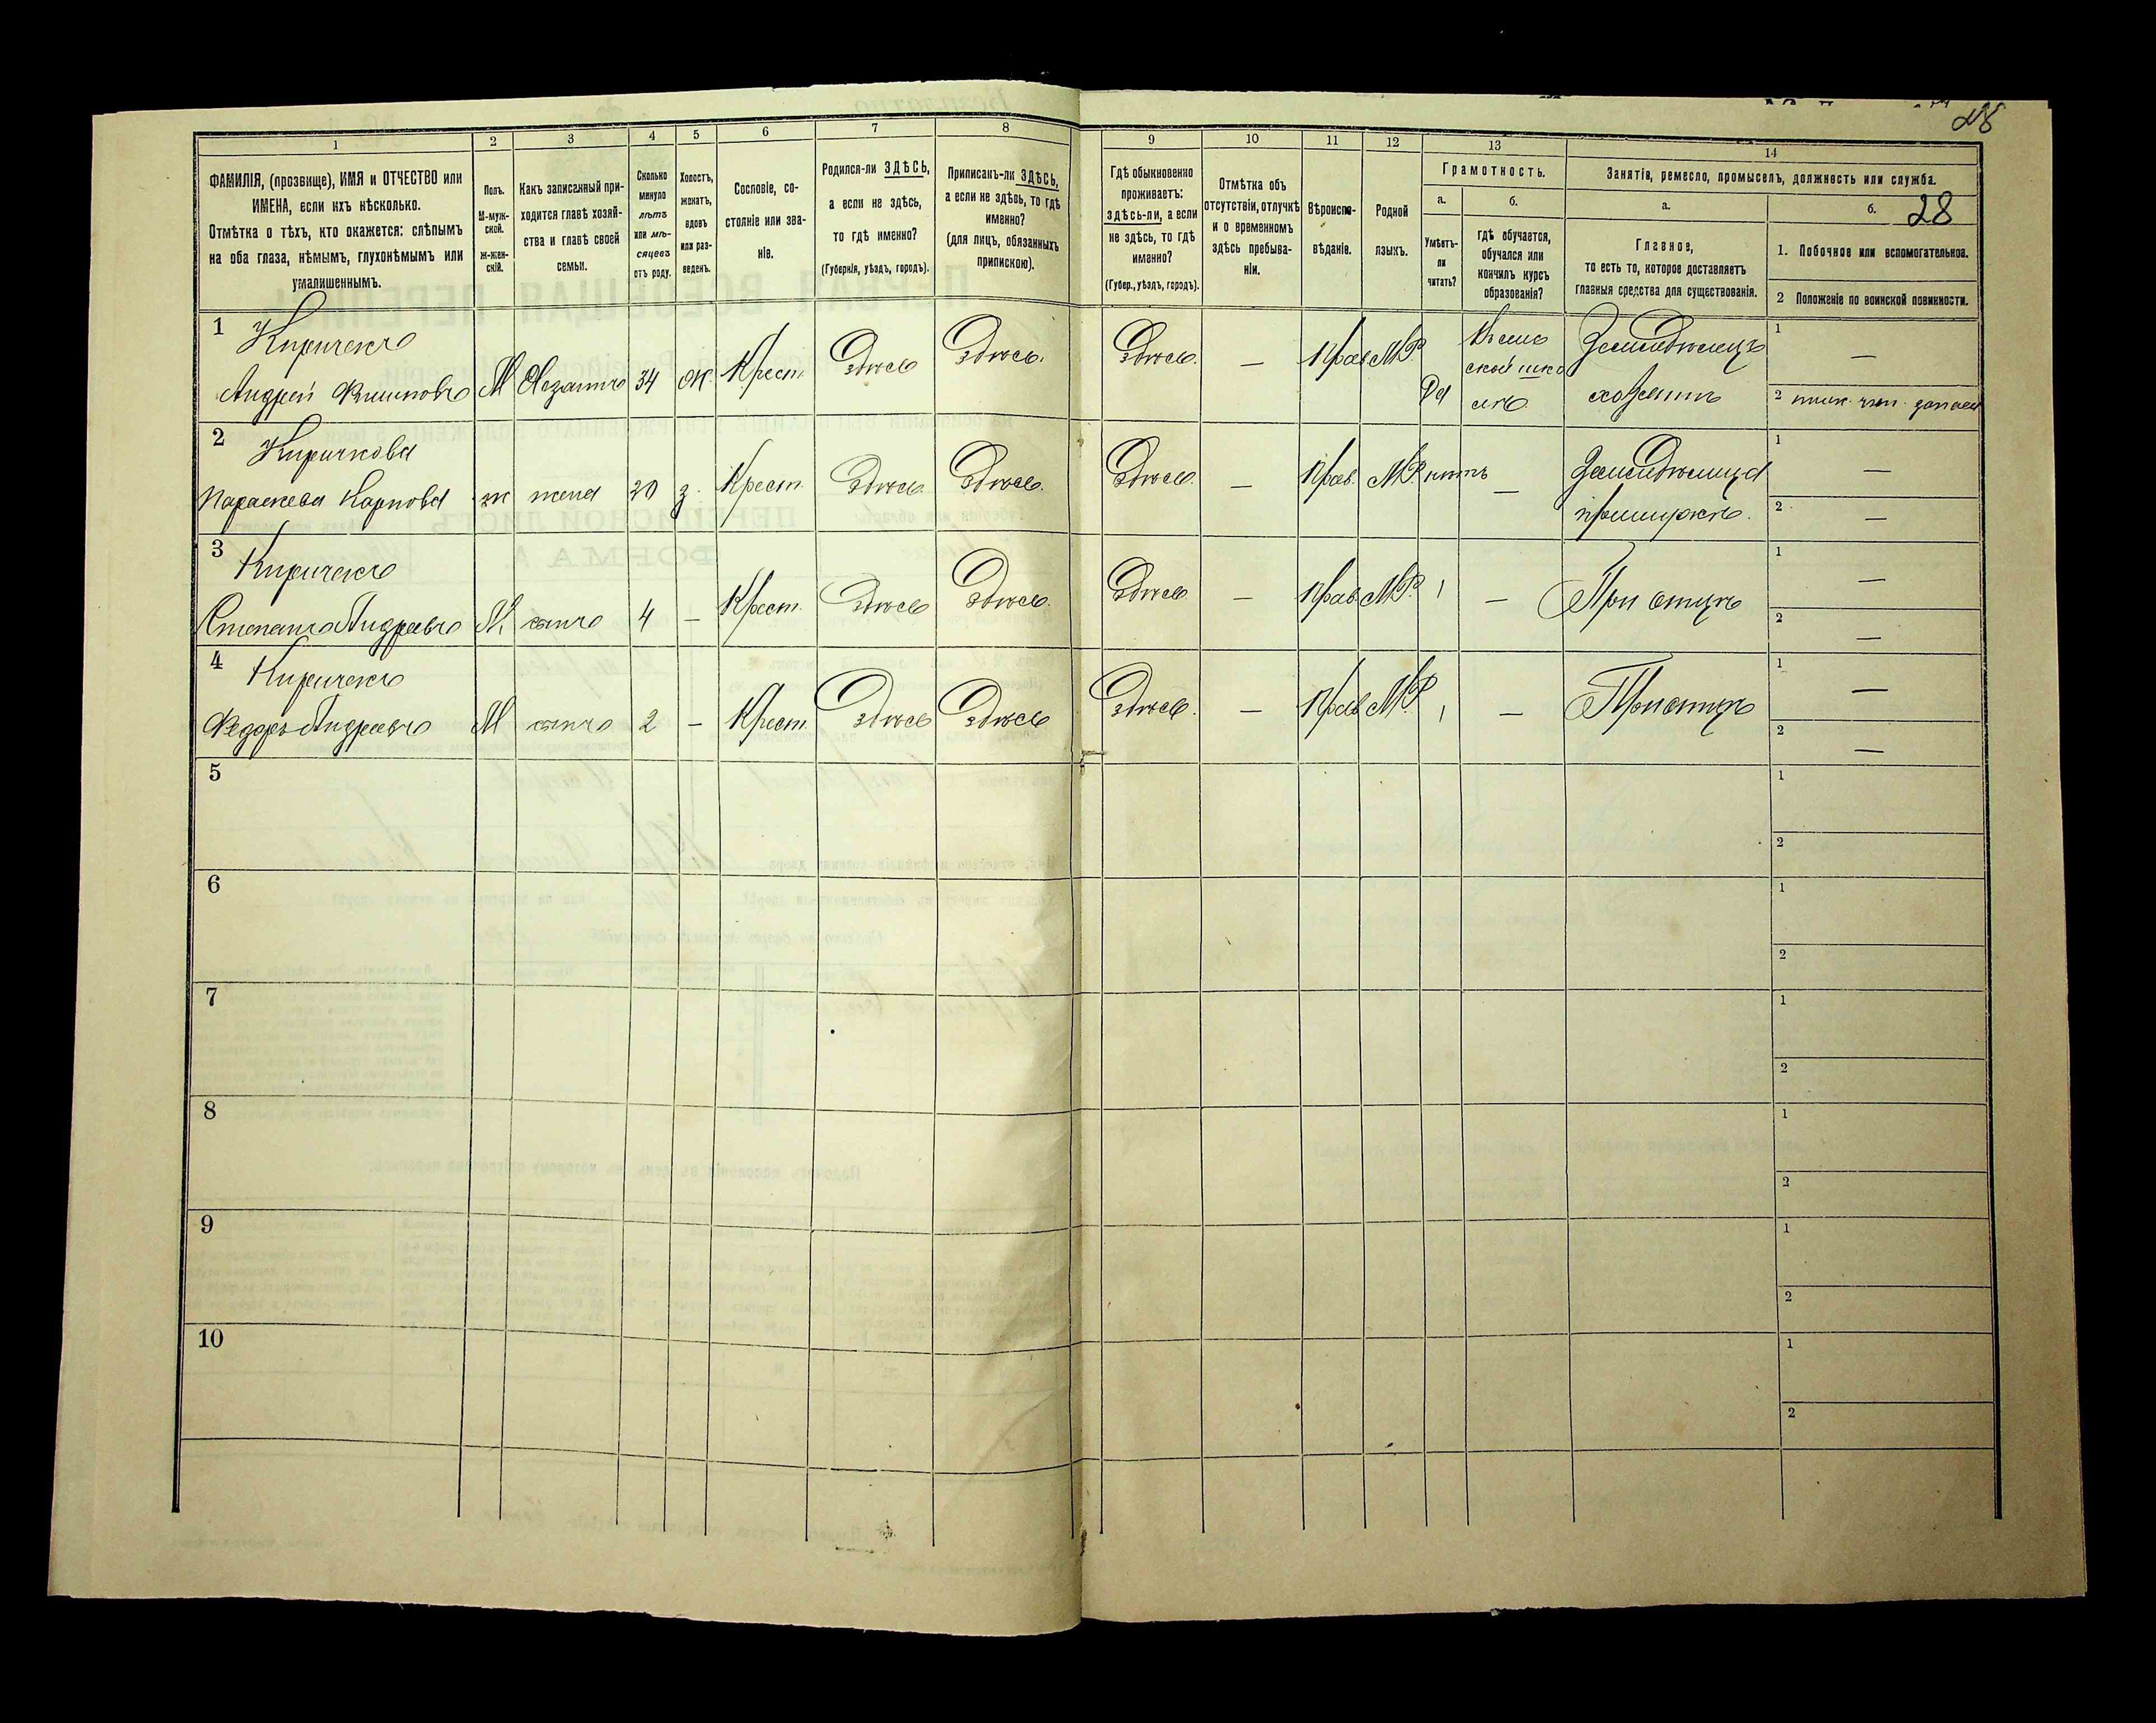 28
1 2 3 4 5 6 7 8 9 10 11 12 13 14
ФАМИЛІЯ, (прозвище), ИМЯ и ОТЧЕСТВО или
ИМЕНА, если ихъ нѣсколько.
Отмѣтка о тѣхъ, кто окажется: слѣпымъ
на оба глаза, нѣмымъ, глухонѣмымъ или
умалишеннымъ.
Полъ.
М-муж-
ской.
Ж-жен-
скій.
Какъ записанный при-
ходится главѣ хозяй-
ства и главѣ своей
семьи.
Сколько
минуло
лѣтъ
или мѣ-
сяцевъ
отъ роду.
Холостъ,
женатъ,
вдовъ
или раз-
веденъ.
Сословіе, со-
стояніе или зва-
ніе.
Родился-ли ЗДѢСЬ,
а если не здѣсь,
то гдѣ именно?
(Губернія, уѣздъ, городъ).
Приписанъ-ли ЗДѢСЬ,
а если не здѣсь, то гдѣ
именно?
(для лицъ, обязанныхъ
припискою).
Гдѣ обыкновенно
проживаетъ:
здѣсь-ли, а если
не здѣсь, то гдѣ
именно?
(Губер., уѣздъ, городъ).
Отмѣтка объ
отсутствіи, отлучкѣ
и о временномъ
здѣсь пребыва-
ніи.
Вѣроиспо-
вѣданіе.
Родной
языкъ.
Грамотность.
а.
Умѣетъ-
ли
читать?
б.
гдѣ обучается,
обучался или
кончилъ курсъ
образованія?
Занятіе, ремесло, промыселъ, должность или служба.
а.
Главное,
то есть то, которое доставляетъ
главныя средства для существованія.
б. 28
1. Побочное или вспомогательное.
2 Положеніе по воинской повинности.
1 Киричекъ
Андрей Филиповъ М Хозяинъ 34 Ж. Крест. Здѣсь Здѣсь. Здѣсь. — Прав МР Да
Въ сель
ской шко
лѣ
Земледѣлецъ
хозяинъ
1 —
2
2 Киричкова
Параскева Карпова ж жена 30 з. Крест. Здѣсь. Здѣсь. Здѣсь. — Прав. МР. нѣтъ —
Земледѣлица
1 —
2 —
3 Киричекъ
Степанъ Андреевъ М. сынъ 4 — Крест. Здѣсь Здѣсь. Здѣсь — Прав МР. — При отцѣ
1 —
2 —
4 Киричекъ
Федоръ Андреевъ М сынъ 2 — Крест Здѣсь Здѣсь Здѣсь. — Прав МР. — При отцѣ
1 —
2 —
5 1
2
6 1
2
7 1
2
8 1
2
9 1
2
10 1
2